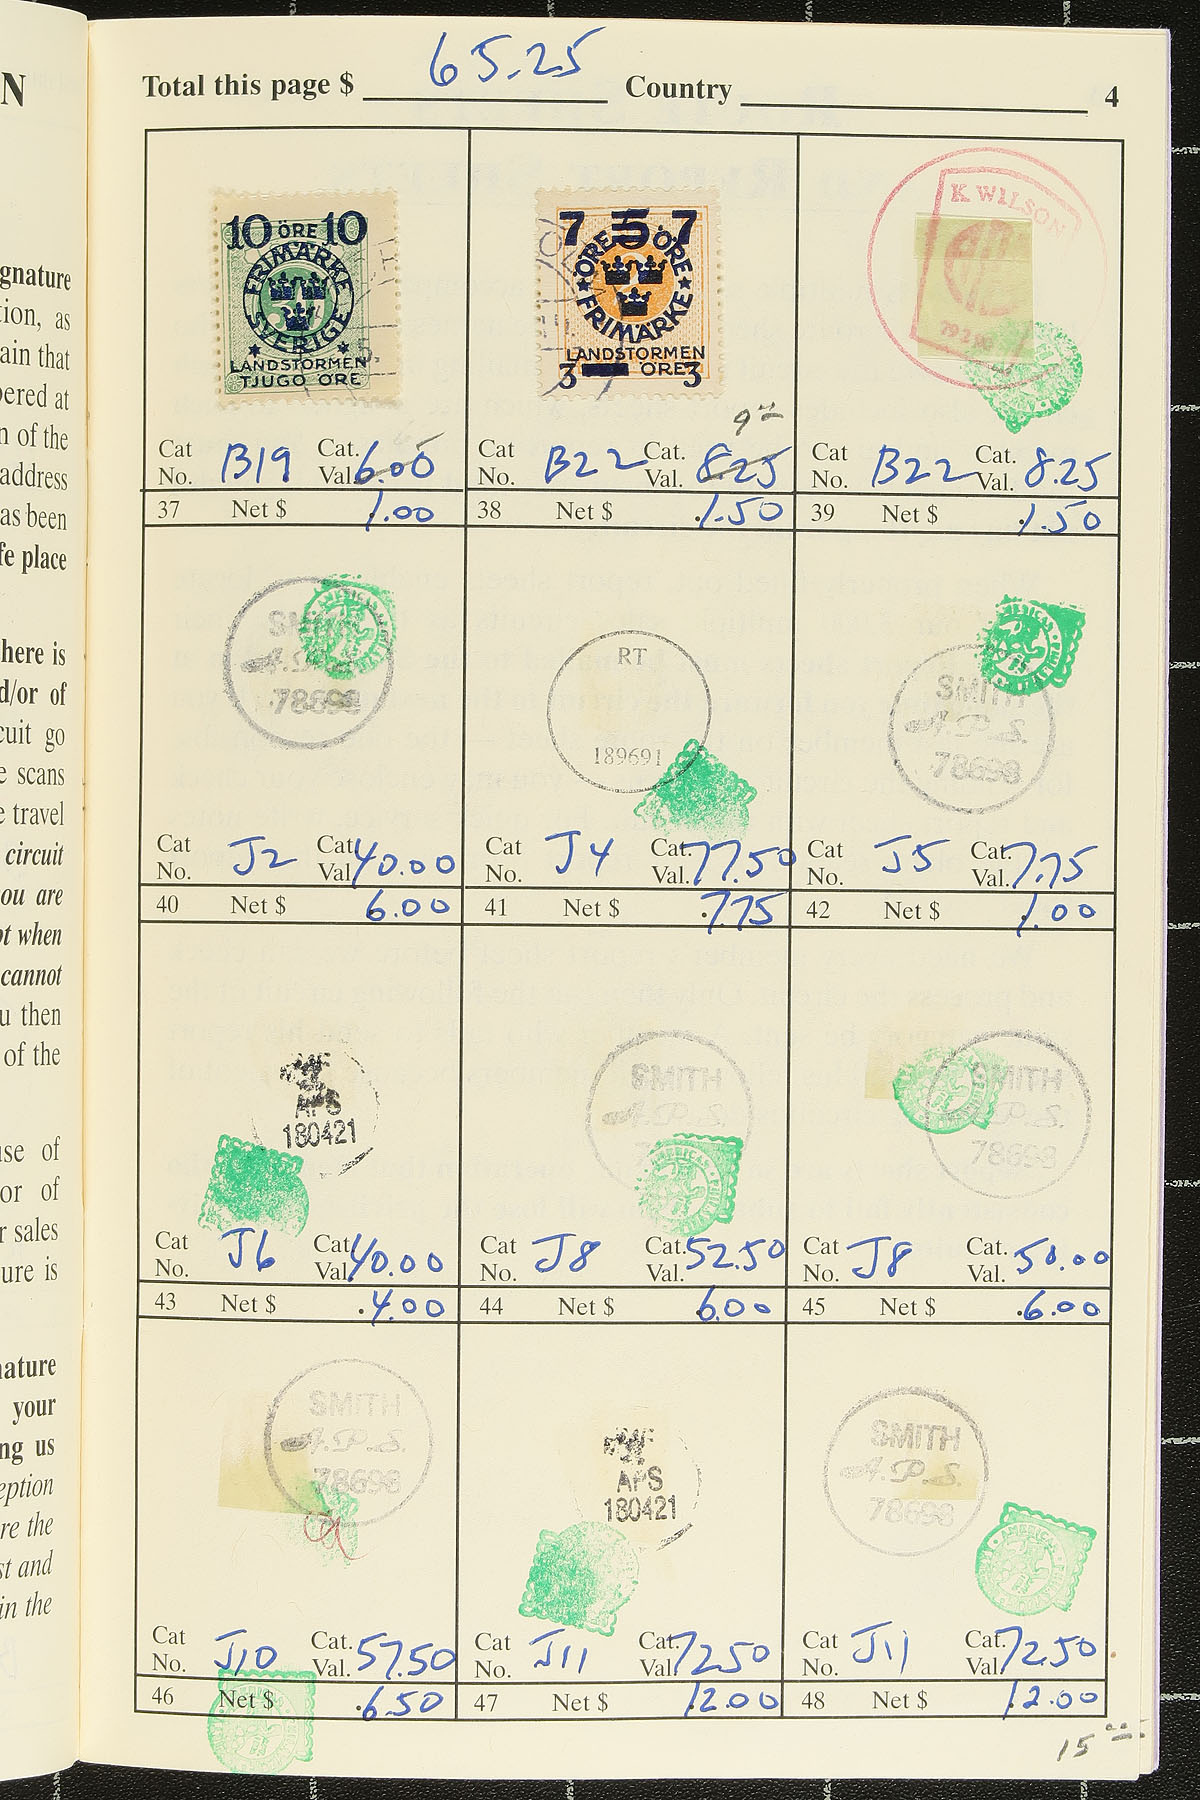 Total this page $ 65.25 Country 4
10 ÖRE 10
FRIMÄRKE
SVERIGE
LANDSTORMEN
TJUGO ÖRE
7 5 7
ÖRE ÖRE
FRIMÄRKE
LANDSTORMEN
3 ÖRE 3
K WILSON
Cat No. B19 Cat. Val. 6.00
37 Net $ 1.00
Cat No. B22 Cat. Val. 8.25
38 Net $ 1.50
Cat No. B22 Cat. Val. 8.25
39 Net $ 1.50
SMITH
A.P.S.
78698
RT
189691
SMITH
A.P.S.
78698
Cat No. J2 Cat. Val. 40.00
40 Net $ 6.00
Cat No. J4 Cat. Val. 77.50
41 Net $ 7.75
Cat No. J5 Cat. Val. 7.75
42 Net $ 1.00
APS
180421
SMITH
A.P.S.
AMERICAN
SMITH
A.P.S.
78698
Cat No. J6 Cat. Val. 40.00
43 Net $ 4.00
Cat No. J8 Cat. Val. 52.50
44 Net $ 6.00
Cat No. J8 Cat. Val. 50.00
45 Net $ 6.00
SMITH
A.P.S.
78698
APS
180421
SMITH
A.P.S.
78698
AMERICAN
Cat No. J10 Cat. Val. 57.50
46 Net $ 6.50
Cat No. J11 Cat. Val. 72.50
47 Net $ 12.00
Cat No. J11 Cat. Val. 72.50
48 Net $ 12.00
N
gnature
tion, as
ain that
bered at
n of the
address
as been
fe place
here is
d/or of
cuit go
e scans
e travel
circuit
ou are
ot when
cannot
u then
of the
use of
or of
r sales
ure is
nature
your
ng us
eption
re the
st and
in the